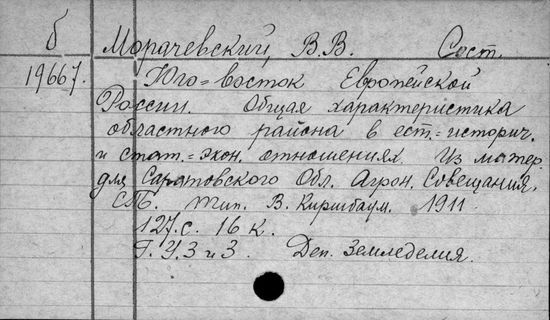 б
Морачевский, В.В. Сост.
19667.
Юго=восток Европейской
России. Общая характеристика
областного района в ест.=историч.
и стат.=экон. отношениях. Из матер.
для Саратовского Обл. Агрон. Совещания.
СПБ. тип. В. Киршбаум. 1911
127.с. 16 к.
Г.У.З и З. Деп. Земледелия.